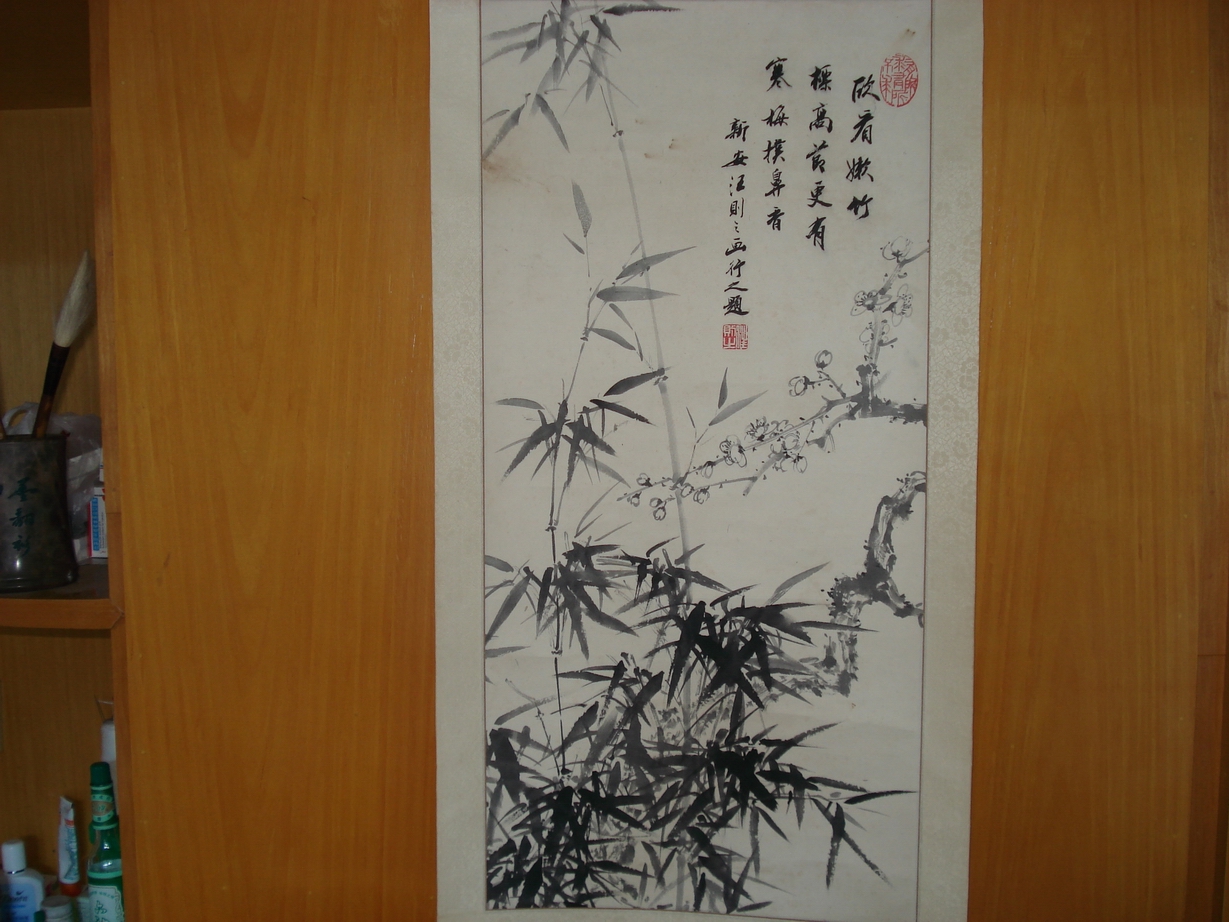 欣看嫩竹
標高节更有
寒梅撲鼻香
新安汪則之画行之題